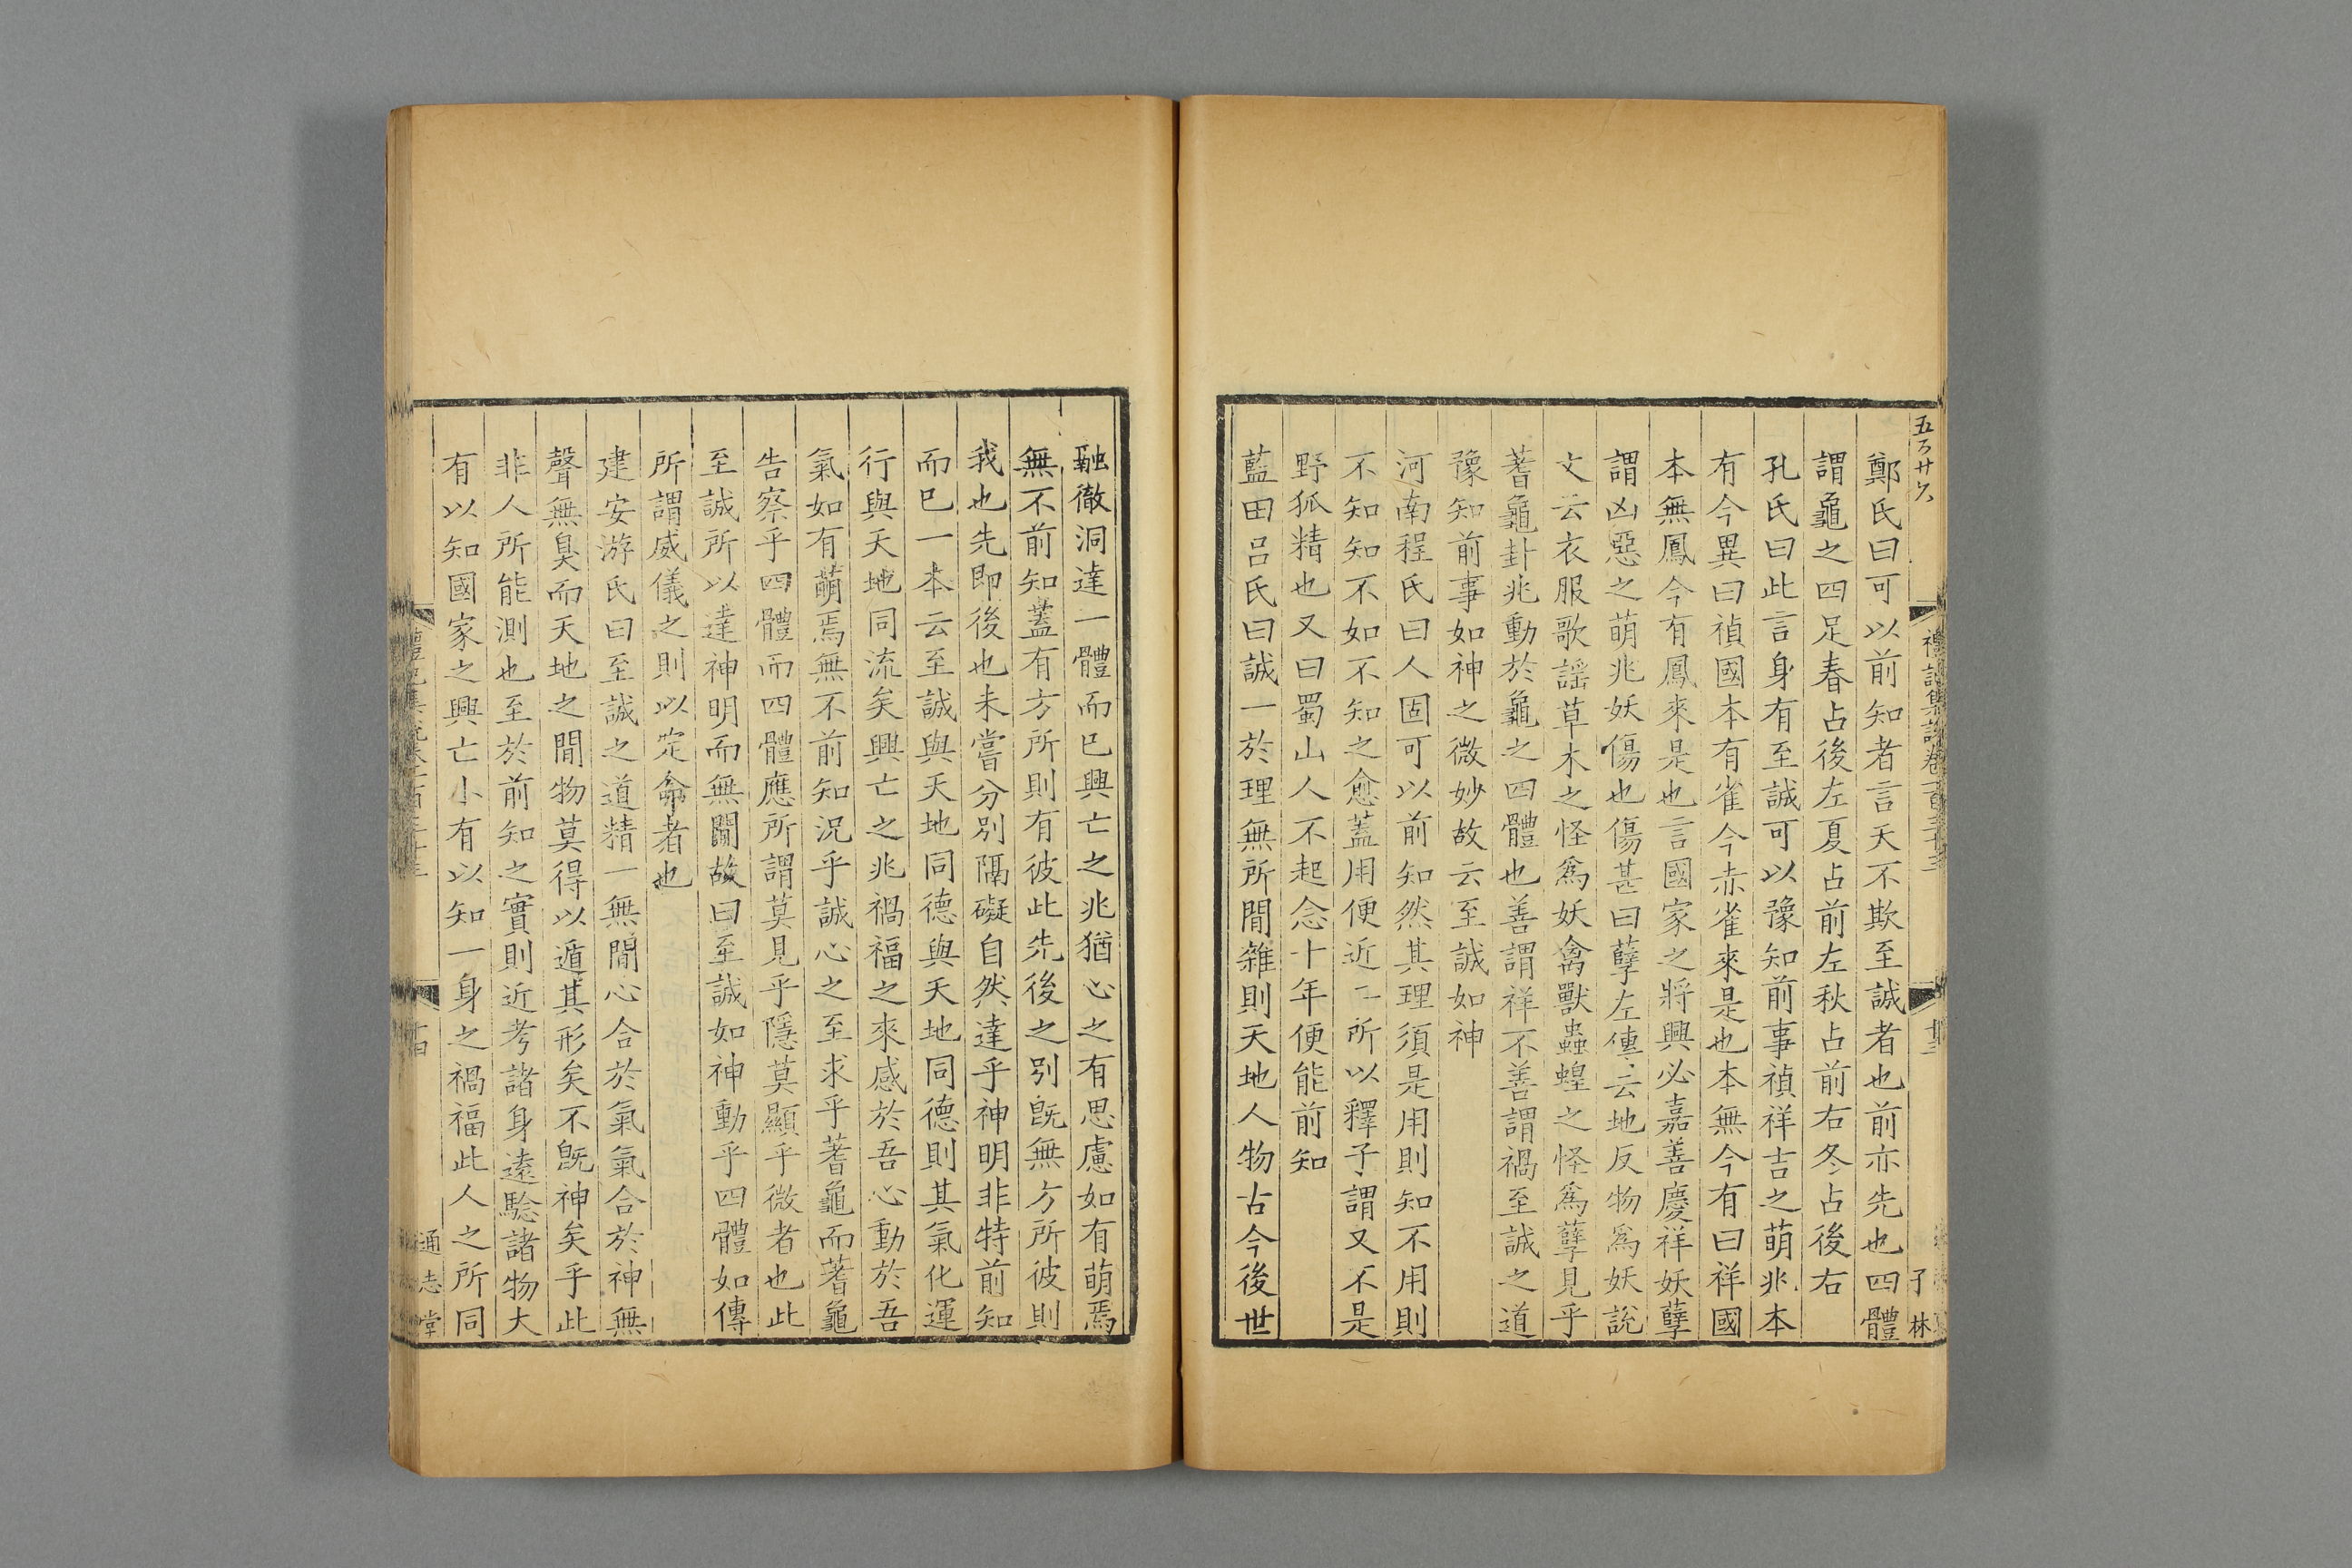 鄭氏曰可以前知者言天不欺至誠者也前亦先也四體
謂龜之四足春占後左夏占前左秋占前右冬占後右
孔氏曰此言身有至誠可以豫知前事禎祥吉之萌兆本
有今異曰禎國本有雀今赤雀來是也本無今有曰祥國
本無鳳今有鳳來是也言國家之將興必嘉善慶祥妖孽
謂凶惡之萌兆妖傷也傷甚曰孽左傳云地反物爲妖說
文云衣服歌謡草木之怪爲妖禽獸蟲蝗之怪爲孽見乎
蓍龜卦兆動於龜之四體也善謂祥不善謂禍至誠之道
豫知前事如神之微妙故云至誠如神
河南程氏曰人固可以前知然其理須是用則知不用則
不知知不如不知之愈蓋用便近二所以釋子謂又不是
野狐精也又曰蜀山人不起念十年便能前知
藍田呂氏曰誠一於理無所間雜則天地人物古今後世
融徹洞達一體而巳興亡之兆猶心之有思慮如有萌焉
無不前知蓋有方所則有彼此先後之別旣無方所彼則
我也先即後也未嘗分別隔礙自然達乎神明非特前知
而巳一本云至誠與天地同德與天地同德則其氣化運
行與天地同流矣興亡之兆禍福之來感於吾心動於吾
氣如有萌焉無不前知況乎誠心之至求乎蓍龜而蓍龜
告察乎四體而四體應所謂莫見乎隱莫顯乎微者也此
至誠所以達神明而無閒故曰至誠如神動乎四體如傳
所謂威儀之則以定命者也
建安游氏曰至誠之道精一無間心合於氣氣合於神無
聲無臭而天地之間物莫得以遁其形矣不旣神矣乎此
非人所能測也至於前知之實則近考諸身遠驗諸物大
有以知國家之興亡小有以知一身之禍福此人之所同
通志堂